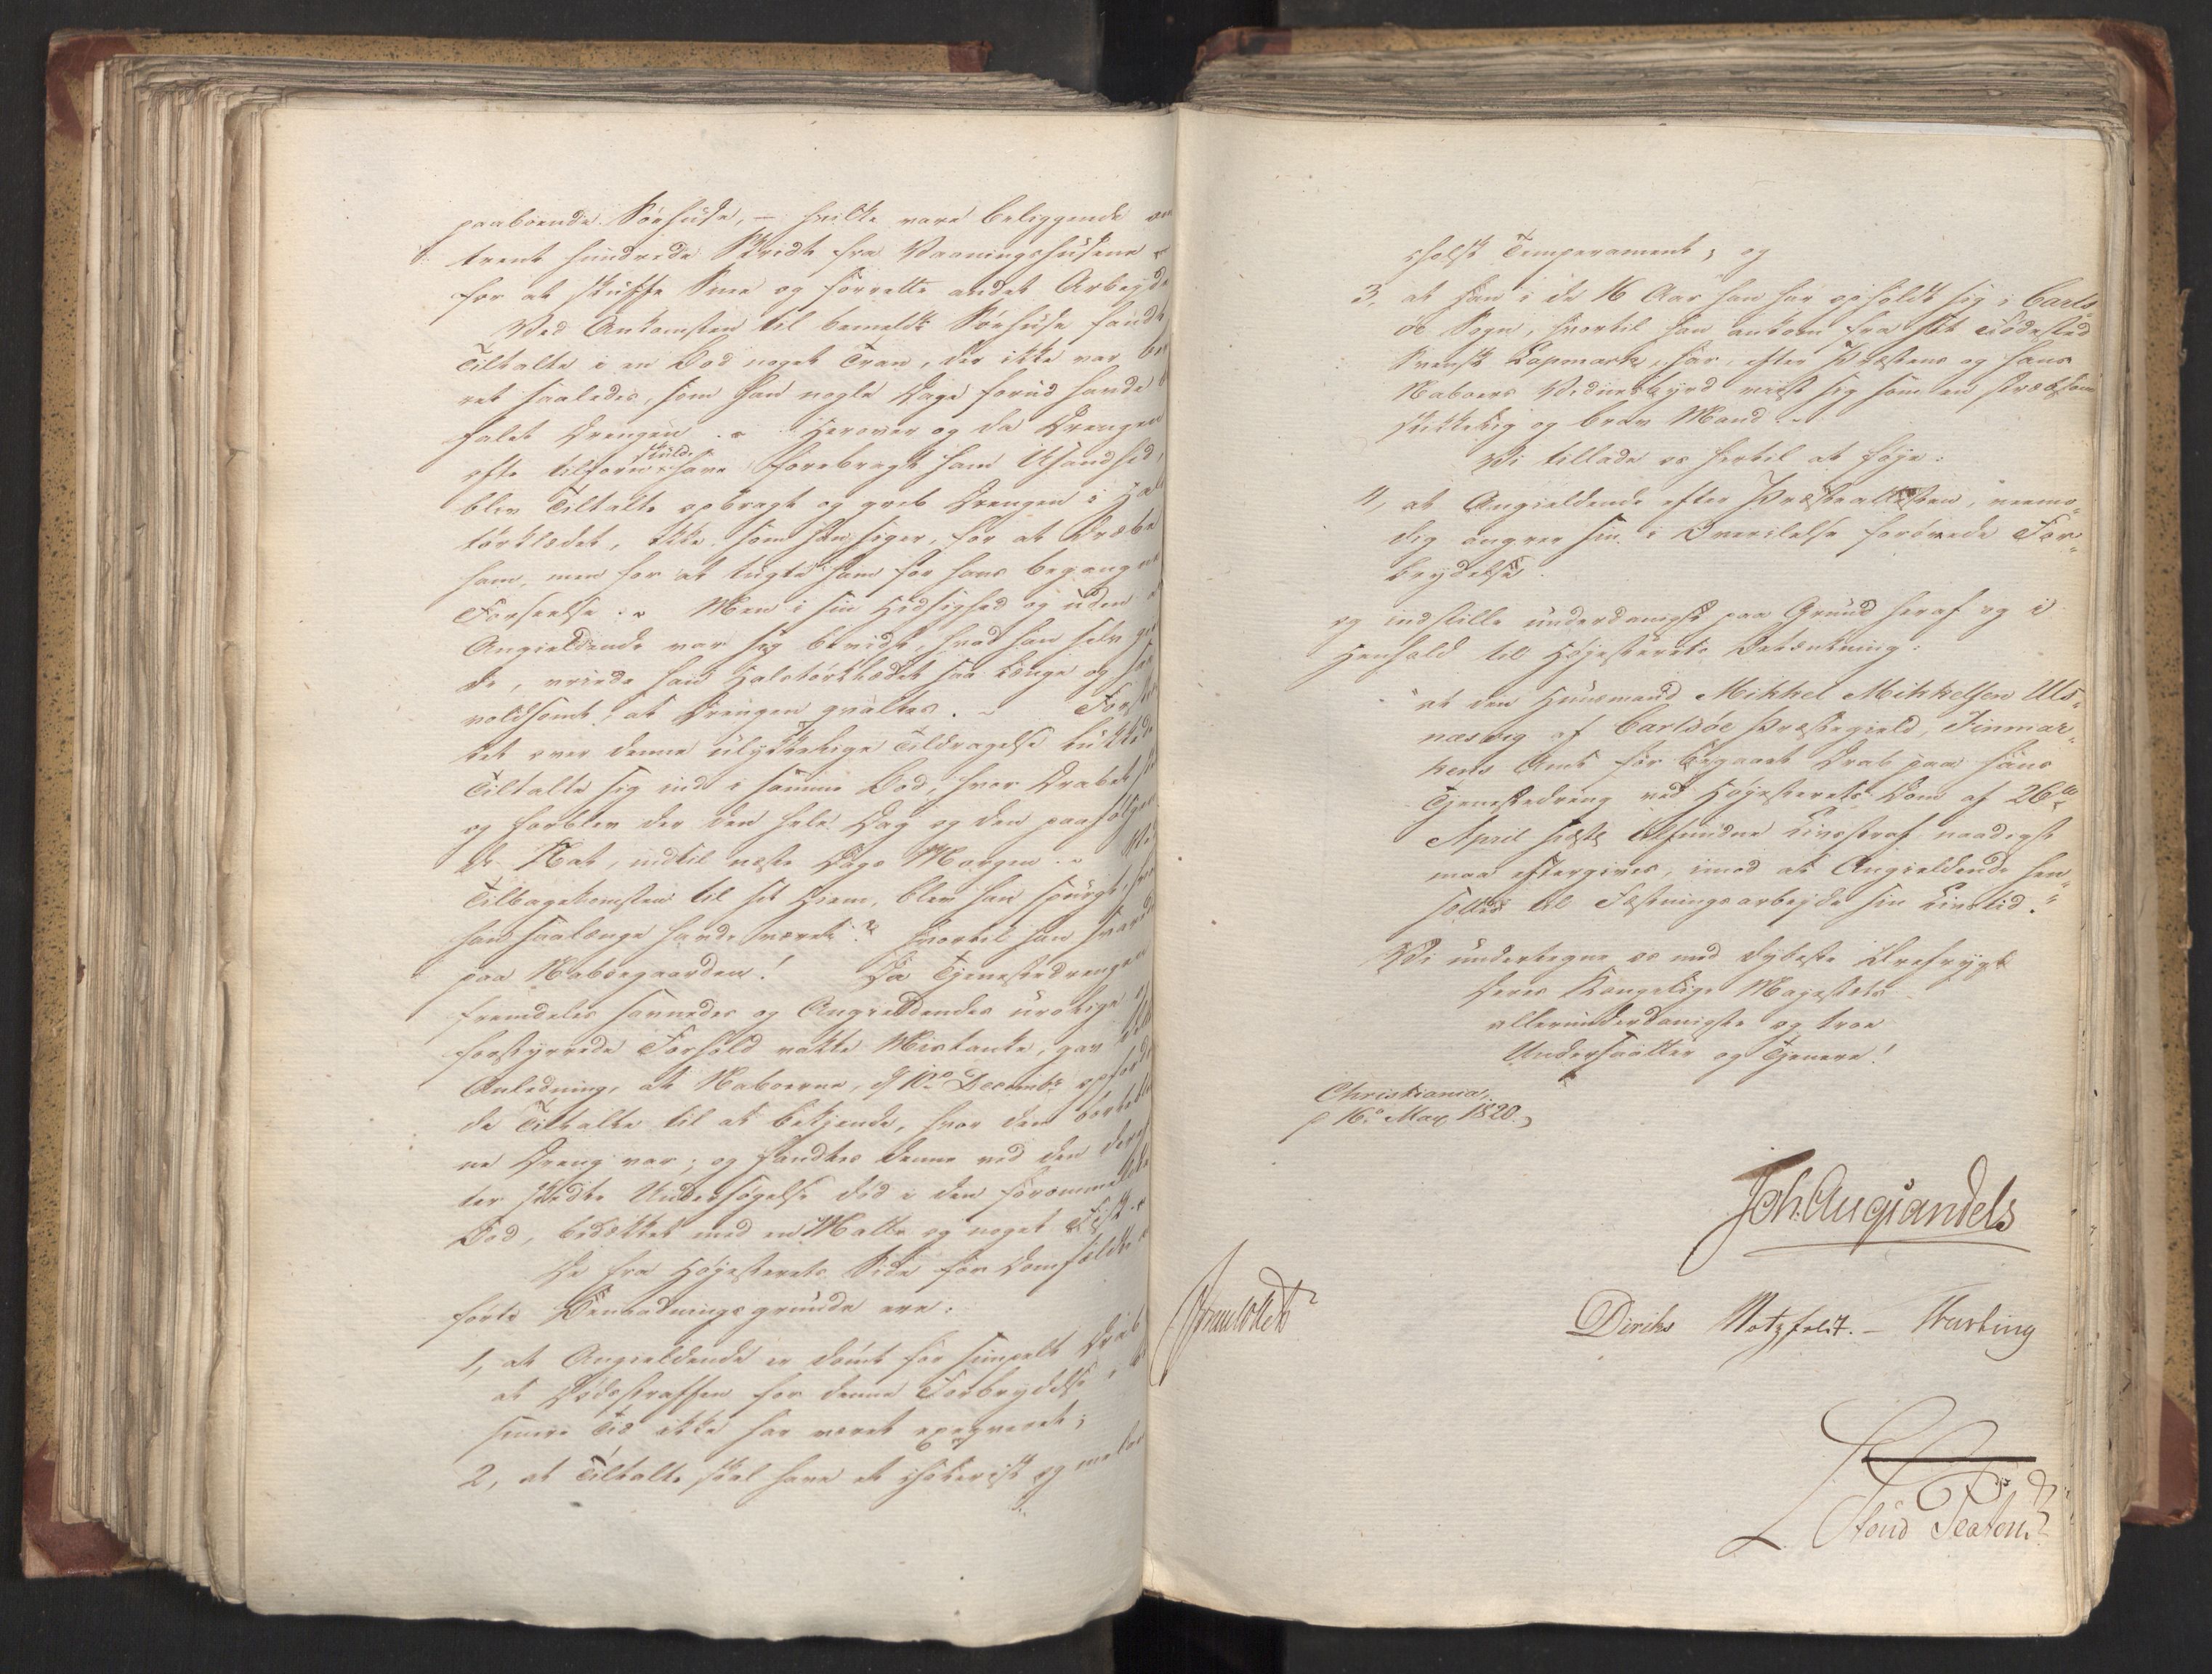 paaboende Søehuse, – hvilke vare beliggende om
trent hundrede Skridt fra Vaaningshusene
for at skuffe Snee og forrette andet Arbejde
Ved Ankomsten til bemeldte Søehuse fandt
Tiltalte i en Bod noget Tran, der ikke var
ret saaledes, som han nogle Dage forud havde
falet Drengen. – Herover og da Drengen
ofte tilforn skulde have forebragt ham Usandhed,
blev Tiltalte opbragt og greb Drengen i Hals
tørklædet, ikke, som han siger, for at dræbe
ham, men for at tugte ham for hans begangne
Forseelse. – Men i sin Hidsighed og uden
Angieldende var sig bevidst, hvad han selv gior
de, vriede han Halstørklædet saa længe og saa
voldsomt, at Drengen qvaltes. –
tet over denne ulykkelige Tildragelse lukkede
Tiltalte sig ind i samme Bod, hvor Drabet
og forblev der den hele Dag og den paafølgen
de Nat, indtil næste Dags Morgen. – Ved
Tilbagekomsten til sit Hiem, blev han spurgt, hvor
han saalænge havde været? hvortil han svarede
paa Naboegaarden! Da Tjenestedrengen
fremdeles savnedes og Angieldendes urolige og
forstyrrede Forhold vakte Mistanke, gav dette
Anledning, at Naboerne, d. 10de Decembr opfor
de Tiltalte til at bekjende, hvor den
ne Dreng var; og fandtes denne ved den deref
ter skedte Undersøgelse død i den forommeldte
Bod, bedækket med en Matte og noget Fisk. –
De fra Høiesterets Side for Domfældte
førte Benaadningsgrunde ere:
1, at Angieldende er dømt for simpelt Drab
at Dødsstraffen for denne Forbrydelse i
senere Tid ikke har været exeqveret;
2, at Tiltalte skal have et cholerisk og melan
cholsk Temperament; og
3, at han i de 16 Aar han har opholdt sig i Carls-
øe Sogn, hvortil han ankom fra sit Fødested
Svensk Lapmark, har, efter Præstens og hans
Naboers Vidnesbyrd viist sig som en stræbsom
skikkelig og brav Mand. –
Vi tillade os hertil at føje:
4, at Angieldende efter Præsteattesten, veemo-
dig angrer sin i Overilelse forøvede For-
brydelse.
og indstille underdanigst paa Grund heraf og i
Henhold til Højesterets Betænkning:
"at den Huusmand Mikkel Mikkelsen Uls-
næsvig af Carlsøe Præstegield, Finmar-
kens Amt for begaaet Drab paa hans
Tjenestedreng ved Høyesterets Dom af 26de
April sidste tilfundne Livsstraf naadigst
maa eftergives, imod at Angieldende hen-
sættes til Fæstningsarbejde sin Livstid."
Vi undertegne os med dybeste Ærefrygt
Deres Kongelige Majestæts
allerunderdanigste og troe
Undersaatter og Tjenere!
Christiania,
d 16de May 1820.
Joh: Aug: Sandels
Diriks Motzfeldt. –